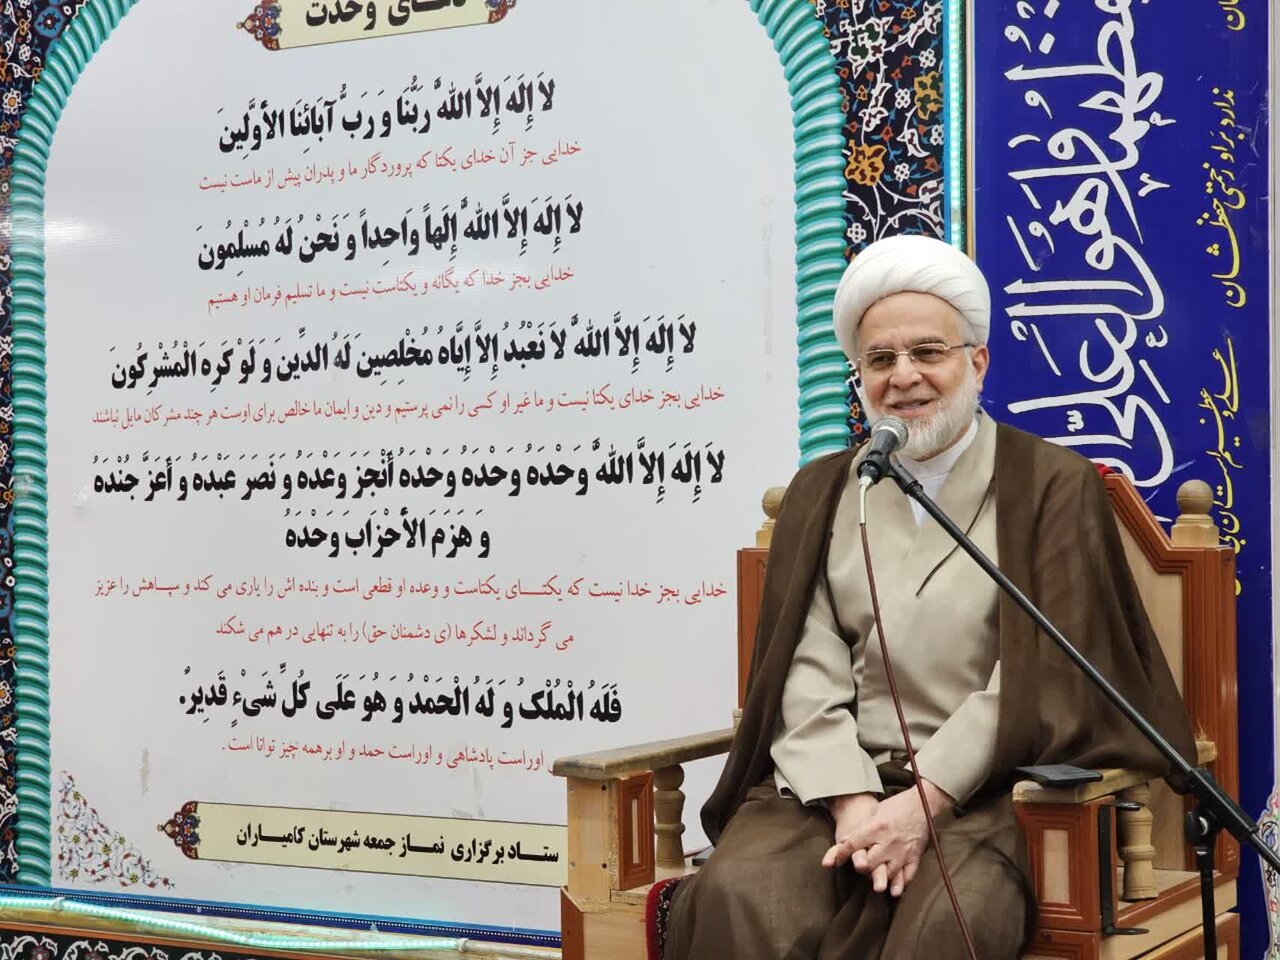 دعای وحدت
لاَ إِلَهَ إِلاَّ اللهُ رَبُّنَا وَ رَبُّ آبَائِنَا الأَوَّلِینَ
خدایی جز آن خدای یکتا که پروردگار ما و پدران پیش از ماست نیست
لاَ إِلَهَ إِلاَّ اللهُ إِلَهاً وَاحِداً وَ نَحْنُ لَهُ مُسْلِمُونَ
خدایی بجز خدا که یگانه و یکتاست نیست و ما تسلیم فرمان او هستیم
لاَ إِلَهَ إِلاَّ اللهُ لاَ نَعْبُدُ إِلاَّ إِیَّاهُ مُخْلِصِینَ لَهُ الدِّینَ وَ لَوْ کَرِهَ الْمُشْرِکُونَ
خدایی بجز خدای یکتا نیست و ما غیر او کسی را نمی پرستیم و دین و ایمان ما خالص برای اوست هر چند مشرکان مایل نباشند
لاَ إِلَهَ إِلاَّ اللهُ وَحْدَهُ وَحْدَهُ وَحْدَهُ أَنْجَزَ وَعْدَهُ وَ نَصَرَ عَبْدَهُ وَ أَعَزَّ جُنْدَهُ
وَ هَزَمَ الأَحْزَابَ وَحْدَهُ
خدایی بجز خدا نیست که یکتای یکتاست و وعده او قطعی است و بنده اش را یاری می کند و سپاهش را عزیز
می گرداند و لشکرها (ی دشمنان حق) را به تنهایی در هم می شکند
فَلَهُ الْمُلْکُ وَ لَهُ الْحَمْدُ وَ هُوَ عَلَی کُلِّ شَیْءٍ قَدِیرٌ.
اوراست پادشاهی و اوراست حمد و او برهمه چیز توانا است .
ستاد برگزاری نماز جمعه شهرستان کامیاران
حِفْظُهُمَا وَ هُوَ الْعَلِیُّ
ندارد بر او زحمتی حفظشان
علی و عظیم است